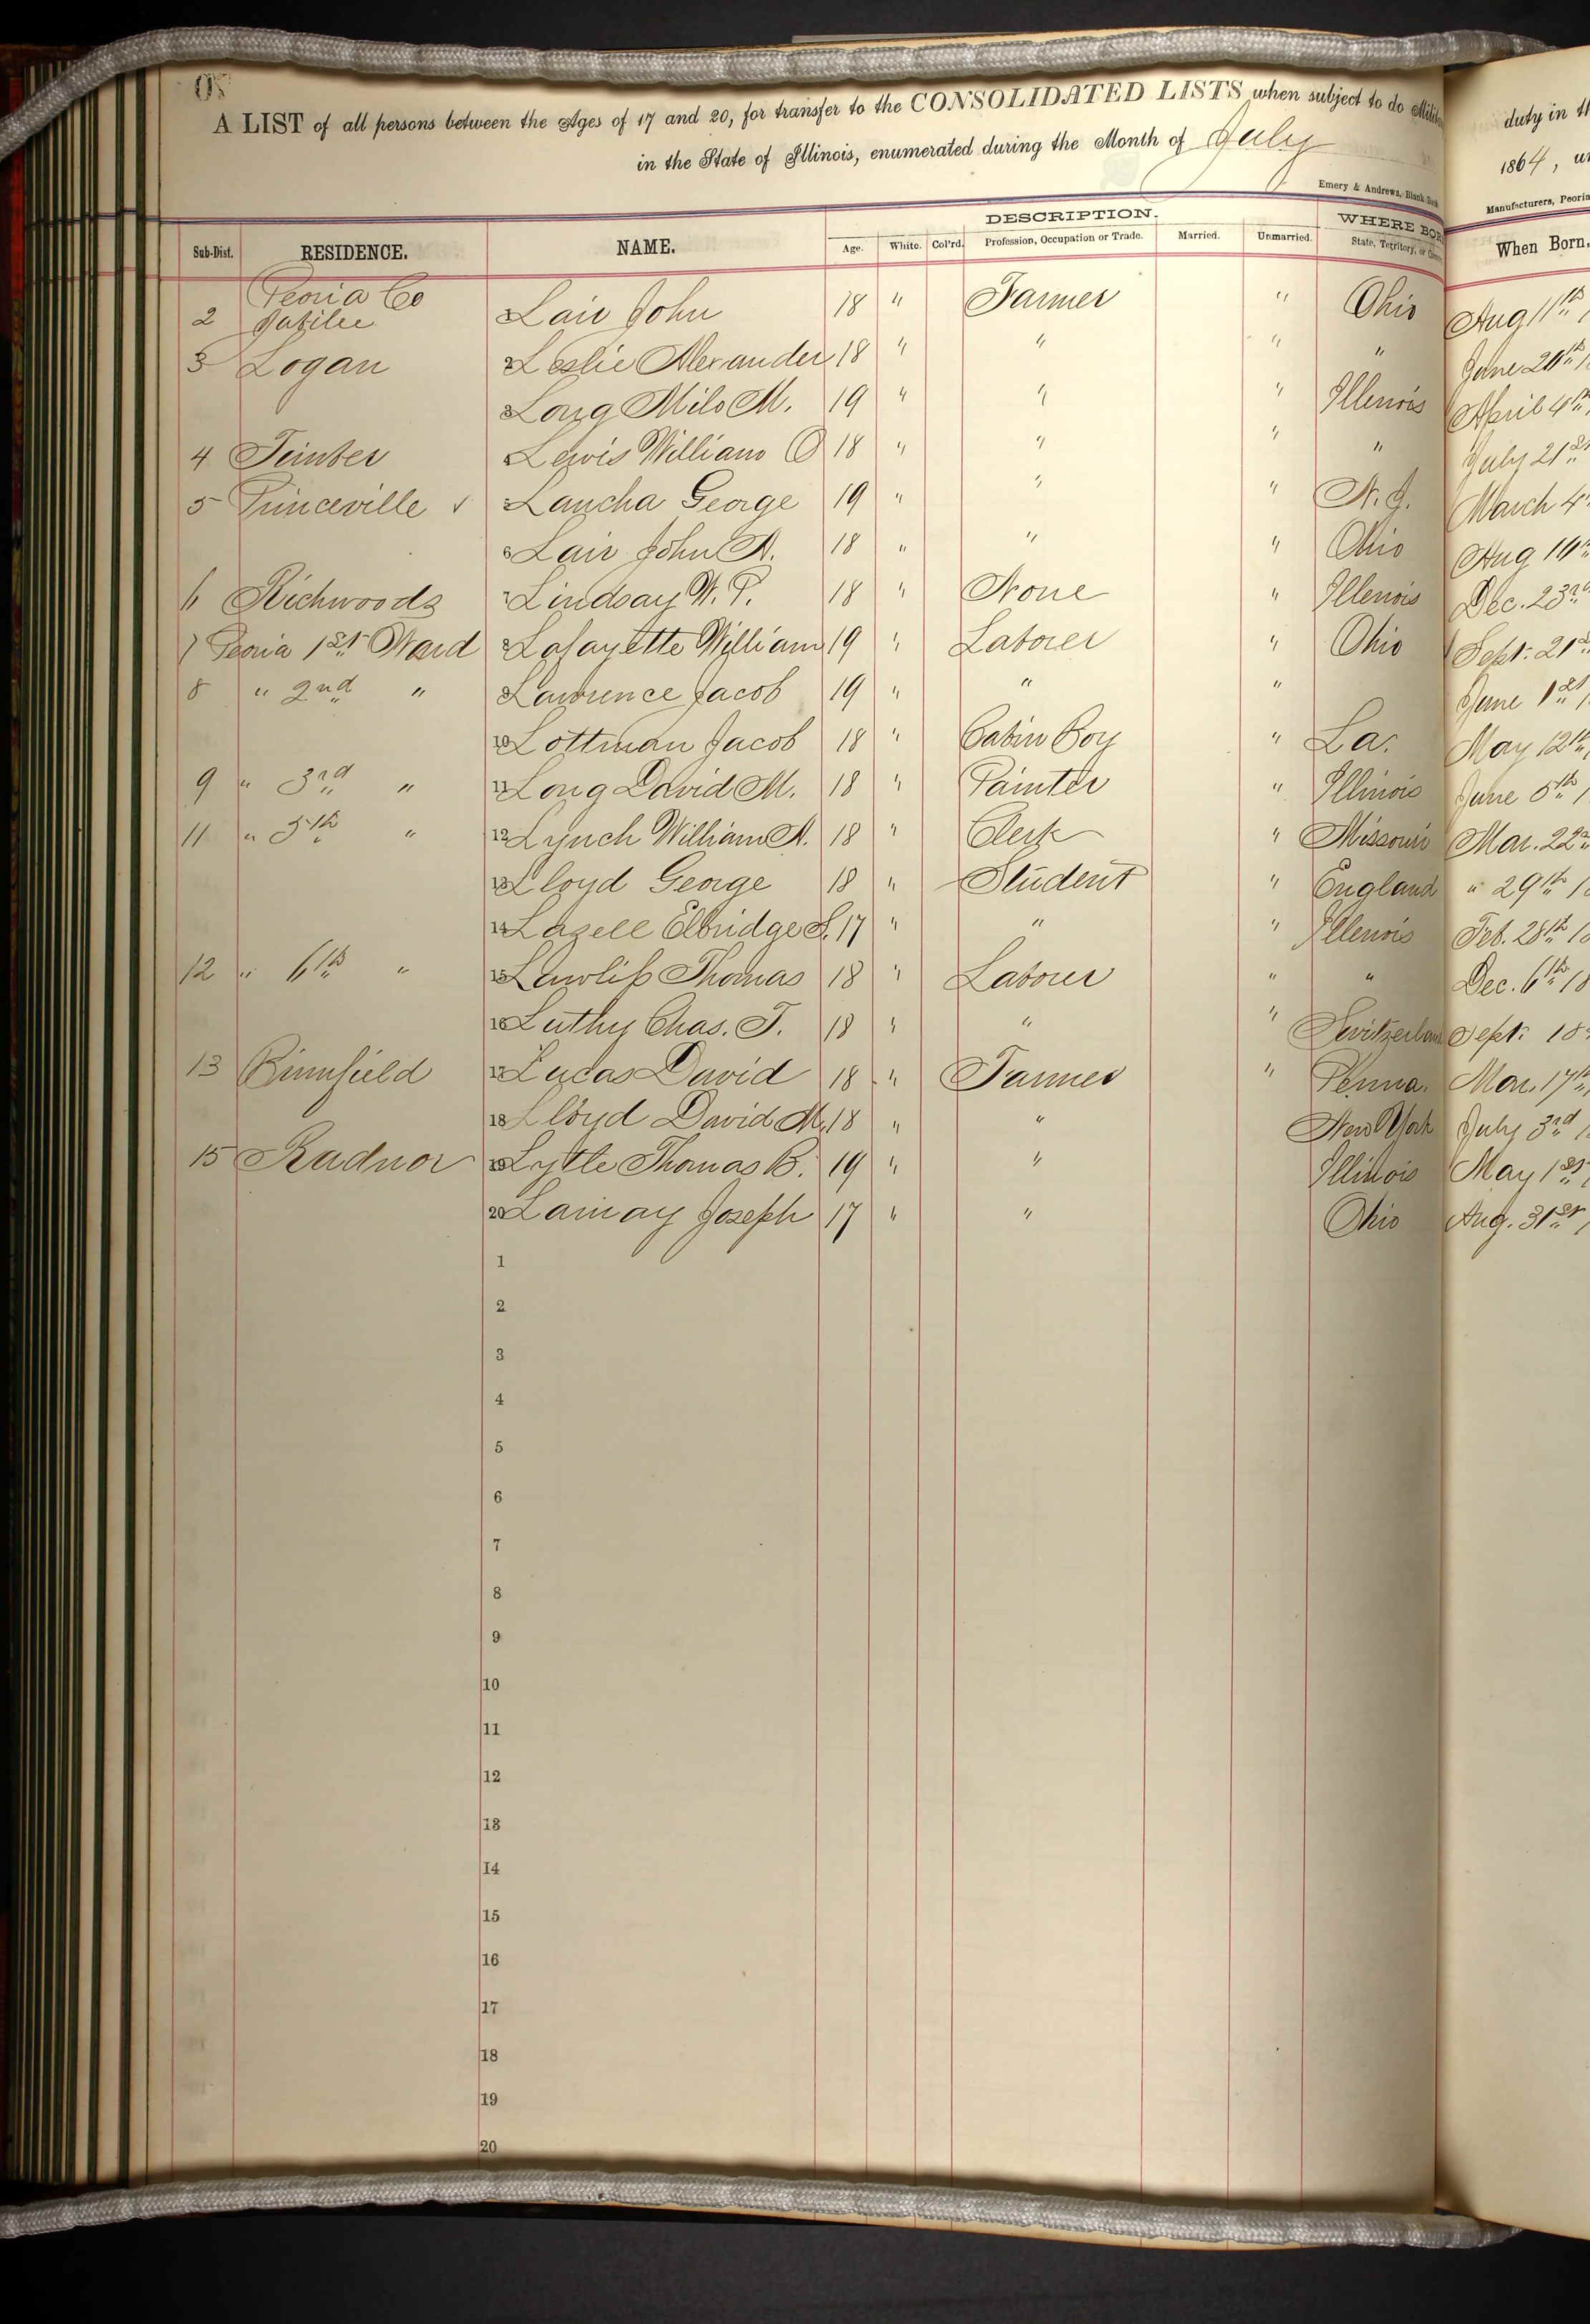 A LIST of all persons between the Ages of 17 and 20, for transfer to the CONSOLIDATED LISTS when subject to do
duty in
in the State of Illinois, enumerated during the Month of July
1864,
Emery & Andrews, Blank Book
Manufacturers, Peoria
DESCRIPTION.
WHERE BOR
Sub-Dist. RESIDENCE. NAME. Age. White. Col'rd. Profession, Occupation or Trade. Married. Unmarried. State, Territory, or When Born.
Peoria Co
2 Jubilee 1 Lair John 18 " Farmer " Ohio Aug 11th
3 Logan 2 Leslie Alexander 18 " " " " June 20th
3 Long Milo M. 19 " " " Illenois April 4th
4 Timber 4 Lewis William O 18 " " " " July 21st
5 Princeville 5 Lancha George 19 " " " N.J. March 4
6 Lair John A. 18 " " " Ohio Aug 10th
6 Richwoods 7 Lindsay W. P. 18 " None " Illenois Dec. 23rd
7 Peoria 1st Ward 8 Lafayette William 19 " Laborer " Ohio Sept. 21st
8 " 2nd " 9 Lawrence Jacob 19 " " " June 1st
10 Lottman Jacob 18 " Cabin Boy " La. May 12th
9 " 3rd " 11 Long David M. 18 " Painter " Illinois June 5th
11 " 5th " 12 Lynch William A. 18 " Clerk " Missouri Mar. 22nd
13 Lloyd George 18 " Student " England " 29th
14 Lazell Elbridge S. 17 " " " Illenois Feb. 28th
12 " 6th " 15 Lawlis Thomas 18 " Laborer " " Dec. 6th 18
16 Luthy Chas. T. 18 " " " Switzerland Sept. 18
13 Brimfield 17 Lucas David 18 " Farmer " Penna. Mar. 17th
18 Lloyd David M. 18 " " New York July 3rd
15 Radnor 19 Lytle Thomas B. 19 " " Illinois May 1st
20 Lamay Joseph 17 " " Ohio Aug. 31st
1
2
3
4
5
6
7
8
9
10
11
12
13
14
15
16
17
18
19
20